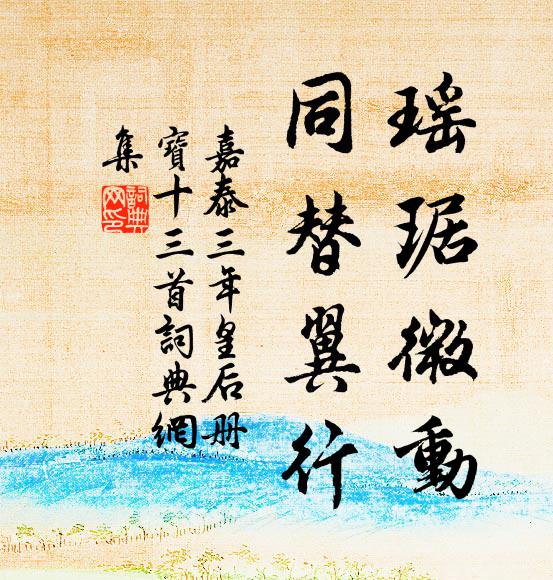 瑶琚微動
同替翼行
嘉泰三年皇后册
寶十三首詞典網
集
詞典網印